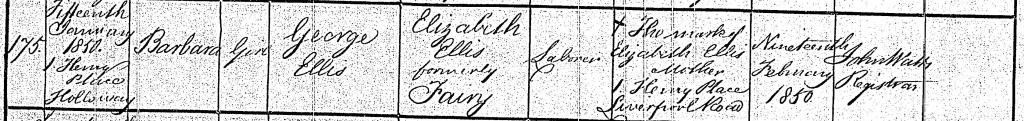 175.
Fifteenth
January
1850.
1 Henry
Place
Holloway
Barbara
Girl
George
Ellis
Elizabeth
Ellis
formerly
Fairy
Laborer
+ The mark of
Elizabeth Ellis
Mother
1. Henry Place
Liverpool Road
Nineteenth
February
1850.
John
Registrar